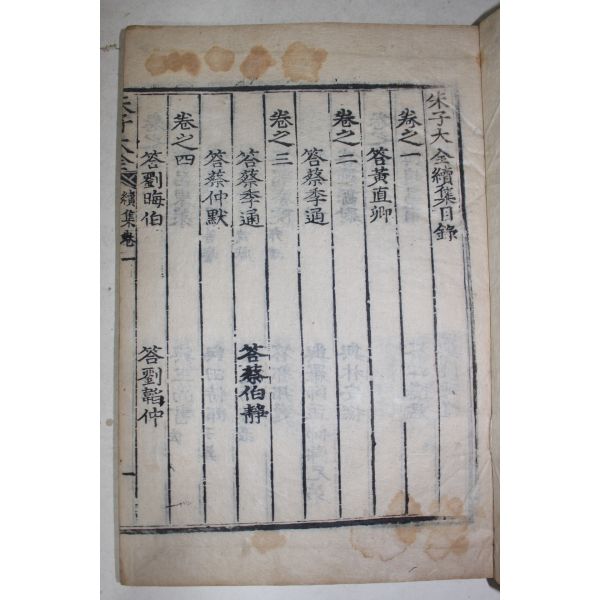 朱子大全續集目錄
卷之一
答黃直卿
卷之二
答蔡季通
卷之三
答蔡季通 答蔡伯靜
答蔡仲默
卷之四
答劉晦伯 答劉韜仲
朱子大全 續集卷 一